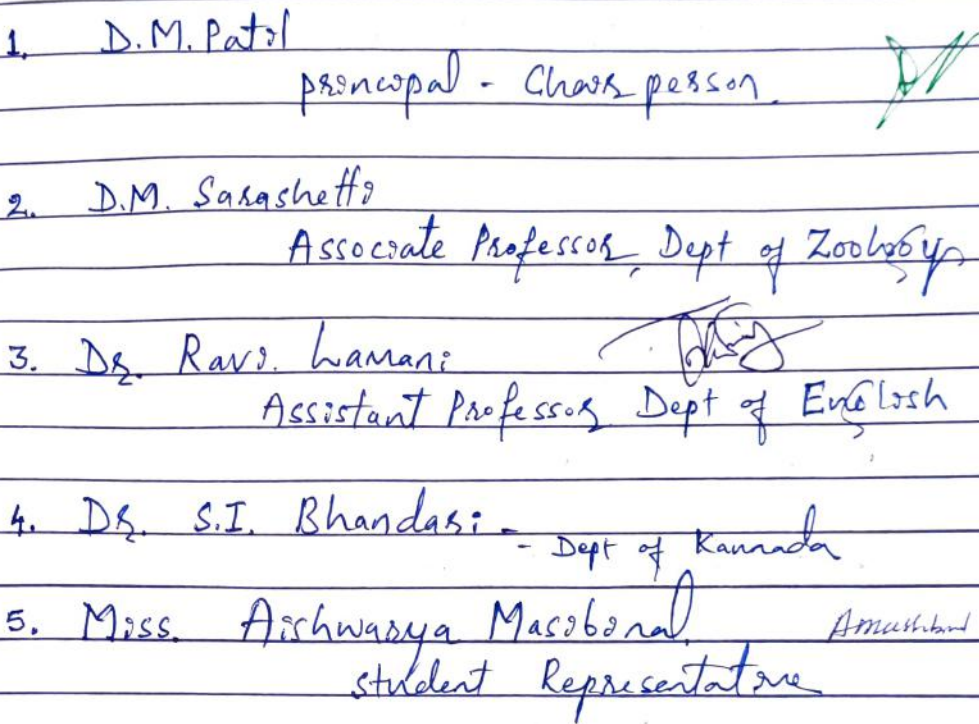 1. D.M. Patil
principal - Chair person.
2. D.M. Sarashetti
Associate Professor, Dept of Zoology
3. Dr. Ravi. Lamani
Assistant Professor Dept of English
4. Dr. S.I. Bhandari - - Dept of Kannada
5. Miss. Aishwarya Masibinal
student Representative